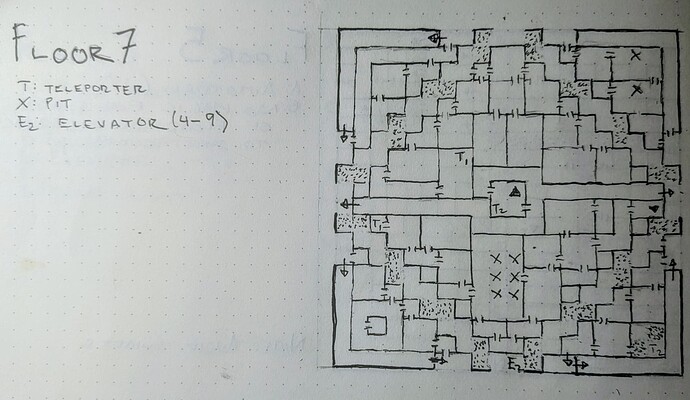 FLOOR 7
T: TELEPORTER
X: PIT
E2: ELEVATOR (4-9)
X
X
T1
T2
T1
X X
X X
X X
E2